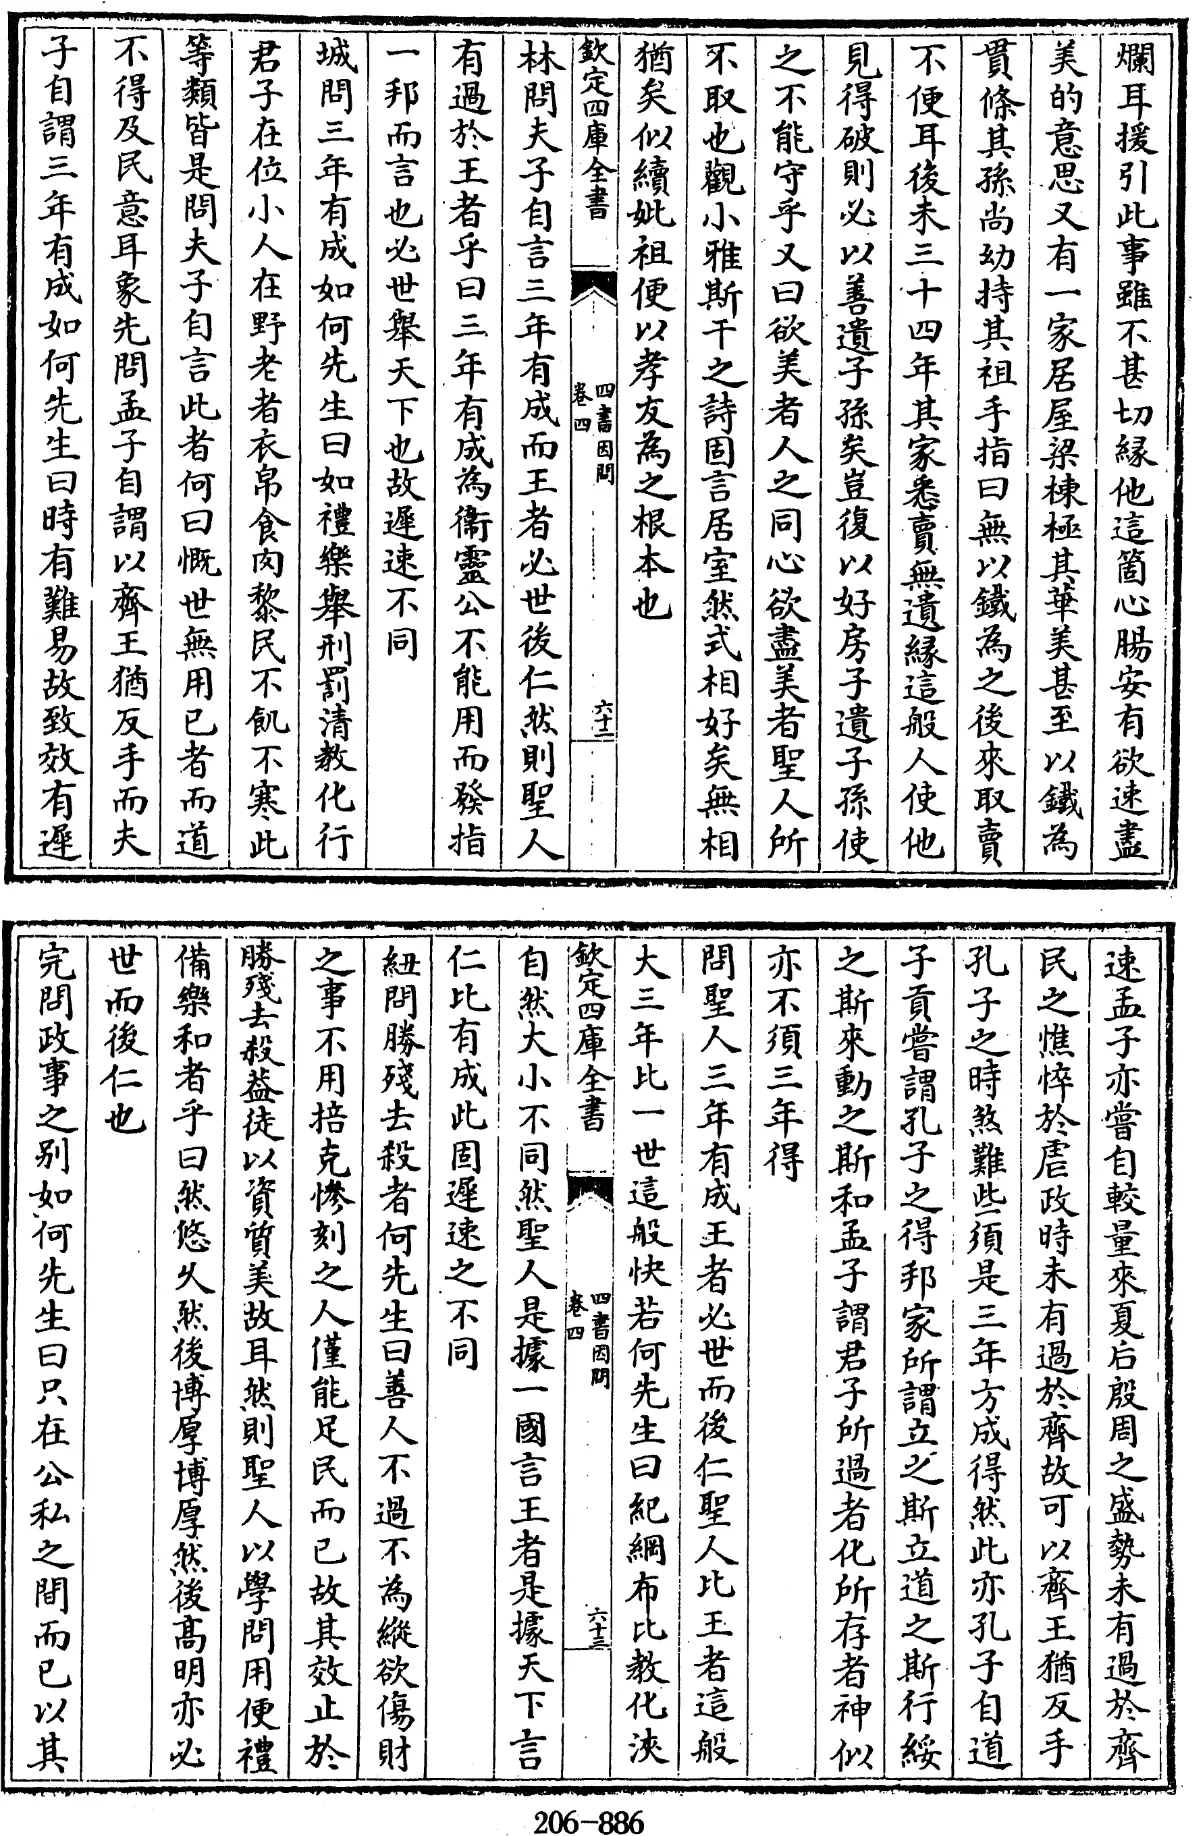 爛耳援引此事雖不甚切縁他這箇心腸安有欲速盡
美的意思又有一家居屋梁棟極其華美甚至以鐵為
貫條其孫尚幼持其祖手指曰無以鐵為之後來取賣
不便耳後未三十四年其家悉賣無遺縁這般人使他
見得破則必以善遺子孫矣豈復以好房子遺子孫使
之不能守乎又曰欲美者人之同心欲盡美者聖人所
不取也觀小雅斯干之詩固言居室然式相好矣無相
猶矣似續妣祖便以孝友為之根本也
欽定四庫全書
四書因問
卷四
六十二
林問夫子自言三年有成而王者必世後仁然則聖人
有過於王者乎曰三年有成為衛靈公不能用而發指
一邦而言也必世舉天下也故遲速不同
城問三年有成如何先生曰如禮樂舉刑罰清教化行
君子在位小人在野老者衣帛食肉黎民不飢不寒此
等類皆是問夫子自言此者何曰慨世無用已者而道
不得及民意耳象先問孟子自謂以齊王猶反手而夫
子自謂三年有成如何先生曰時有難易故致效有遲
速孟子亦嘗自較量來夏后殷周之盛勢未有過於齊
民之憔悴於虐政時未有過於齊故可以齊王猶反手
孔子之時煞難些須是三年方成得然此亦孔子自道
子貢嘗謂孔子之得邦家所謂立之斯立道之斯行綏
之斯來動之斯和孟子謂君子所過者化所存者神似
亦不須三年得
問聖人三年有成王者必世而後仁聖人比王者這般
大三年比一世這般快若何先生曰紀綱布比教化浹
欽定四庫全書
四書因問
卷四
六十三
自然大小不同然聖人是據一國言王者是據天下言
仁比有成此固遲速之不同
紐問勝殘去殺者何先生曰善人不過不為縱欲傷財
之事不用掊克慘刻之人僅能足民而已故其效止於
勝殘去殺葢徒以資質美故耳然則聖人以學問用便禮
備樂和者乎曰然悠久然後博厚博厚然後高明亦必
世而後仁也
完問政事之别如何先生曰只在公私之間而已以其
206-886